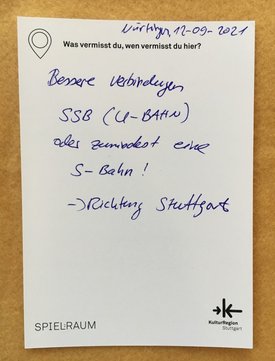 Nürtingen, 12-09-2021
Was vermisst du, wen vermisst du hier?
Bessere Verbindungen
SSB (U-BAHN)
oder zumindest eine
S-Bahn!
→ Richtung Stuttgart
SPIEL:RAUM
KulturRegion
Stuttgart